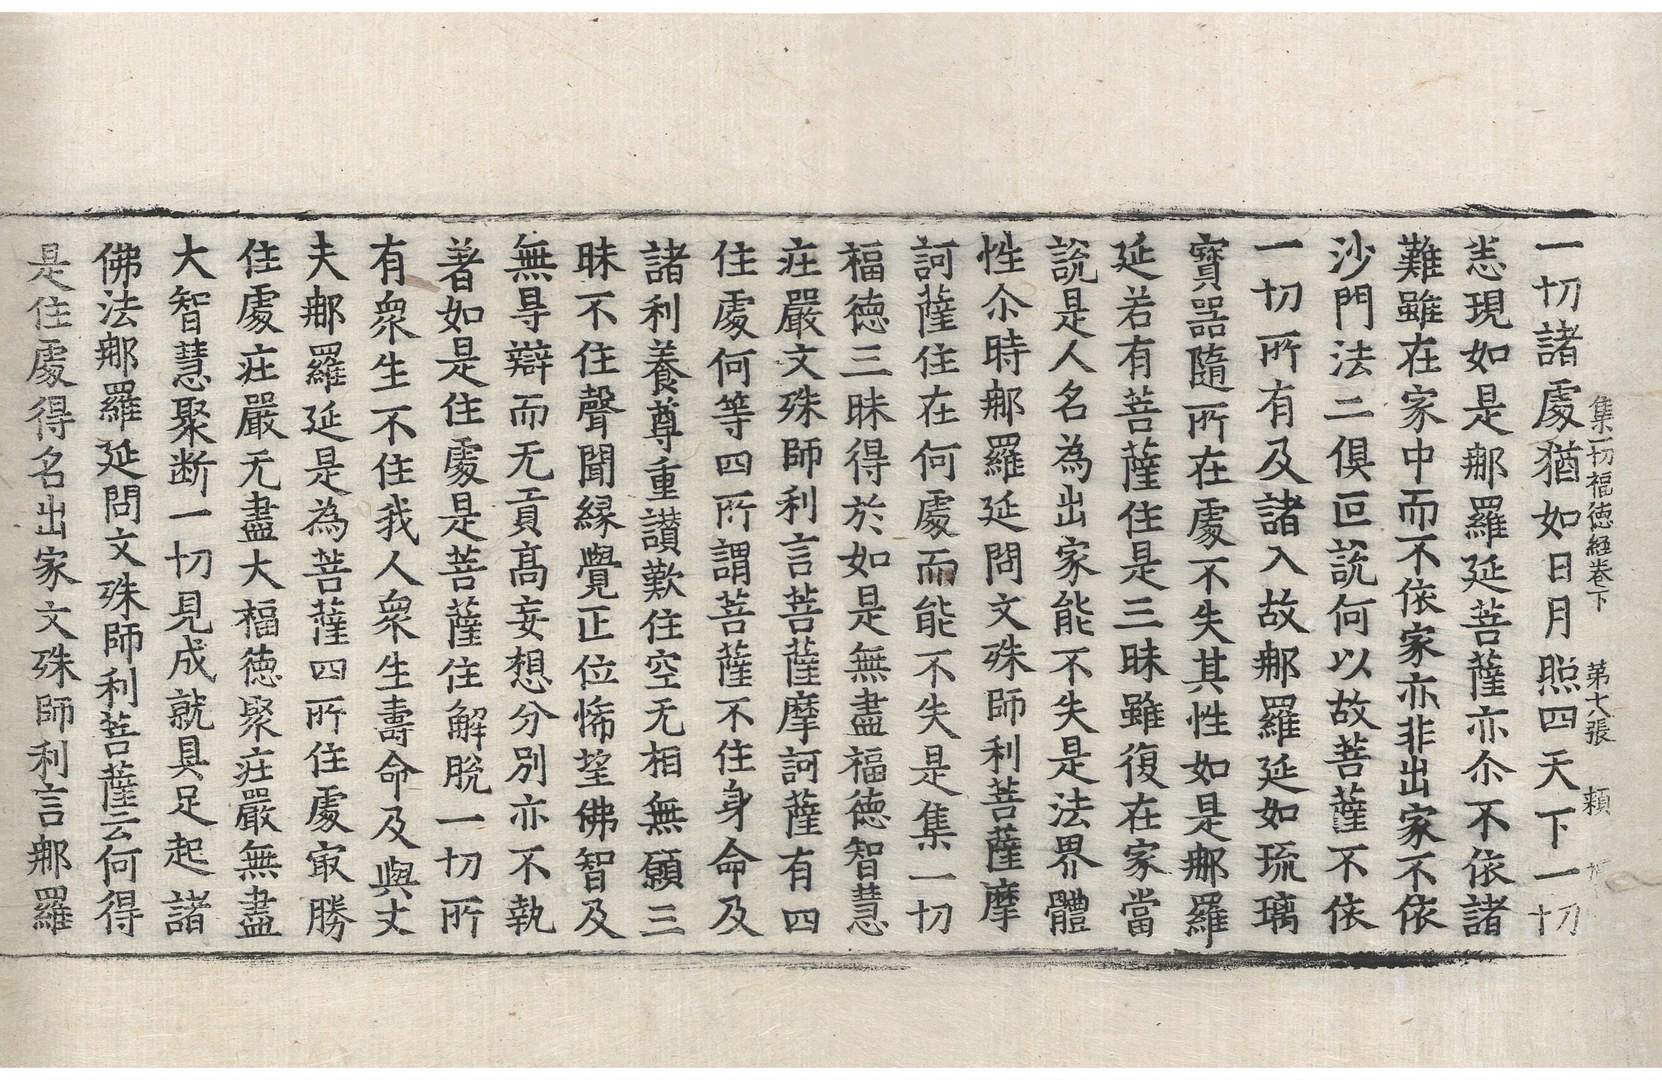 集一切福德経卷下　第七張　頼
一切諸處猶如日月照四天下一切
悉現如是那羅延菩薩亦尒不依諸
難雖在家中而不依家亦非出家不依
沙門法二俱叵說何以故菩薩不依
一切所有及諸入故那羅延如琉璃
寳噐隨所在處不失其性如是那羅
延若有菩薩住是三昧雖復在家當
說是人名為出家能不失是法界體
性尒時那羅延問文殊師利菩薩摩
訶薩住在何處而能不失是集一切
福德三昧得於如是無盡福德智慧
庄嚴文殊師利言菩薩摩訶薩有四
住處何等四所謂菩薩不住身命及
諸利養尊重讃歎住空无相無願三
昧不住聲聞縁覺正位悕望佛智及
無㝵辯而无貢髙妄想分別亦不執
著如是住處是菩薩住解脫一切所
有衆生不住我人衆生壽命及與丈
夫那羅延是為菩薩四所住處㝡勝
住處庄嚴无盡大福德聚庄嚴無盡
大智慧聚断一切見成就具足起諸
佛法那羅延問文殊師利菩薩云何得
是住處得名出家文殊師利言那羅